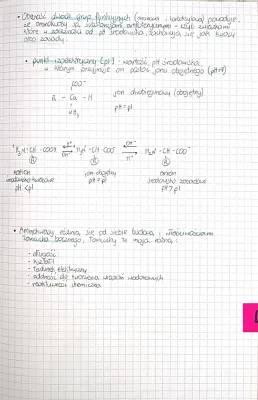 • Obecność dwóch grup funkcyjnych (aminowa i karboksylowa) powoduje,
że aminokwasy są związkami amfoterycznymi - czyli związkami
które w zależności od pH środowiska, zachowują się jak kwasy
albo zasady.
• punkt izoelektryczny (pI) - wartość pH środowiska,
w którym przyjmuje on postać jonu obojętnego
COO⁻
R - Cα - H
jon dwubiegunowy (obojętny)
pH = pI
⁺NH₃
⁺H₃N-CH-COOH ⇌ ⁺H₃N-CH-COO⁻ ⇌ H₂N-CH-COO⁻
OH⁻ H⁺
R R R
kation jon obojętny anion
pH = pI środowisko zasadowe
pH < pI pH > pI
• Aminokwasy różnią się od siebie budową i właściwościami
łańcucha bocznego. Łańcuchy te mogą różnić:
- długość
- kształt
- ładunek elektryczny
- zdolność do tworzenia wiązań wodorowych
- reaktywność chemiczna